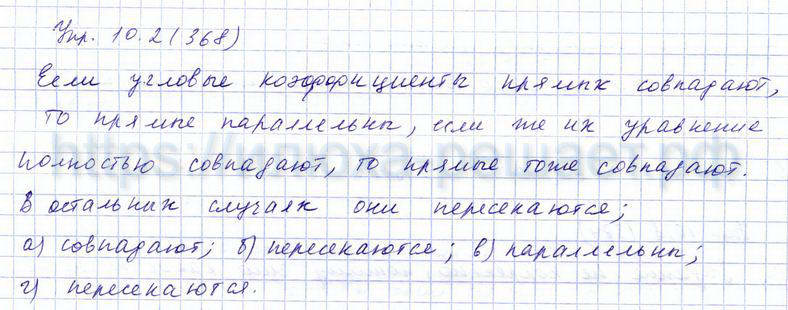 Упр. 10.2 (368)
Если угловые коэффициенты прямых совпадают,
то прямые параллельны, если же их уравнение
полностью совпадают, то прямые тоже совпадают.
В остальных случаях они пересекаются;
а) совпадают; б) пересекаются; в) параллельны;
г) пересекаются.